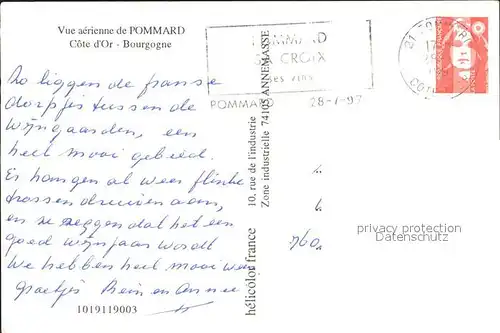 Vue aérienne de POMMARD
Côte d'Or - Bourgogne
Zo liggen de franse
dorpjes tussen de
wijngaarden, een
heel mooi gebied.
Er hangen al weer flinke
trossen druiven aan,
en ze zeggen dat het een
goed wijnjaar wordt
We hebben heel mooi weer
Groetjes Rein en Annie
1019119003
hélicolor france
10, rue de l'industrie
Zone industrielle 74105 ANNEMASSE
POMMARD
CROIX
ses vins
POMMARD 28-7-97
21
760
privacy protection
Datenschutz